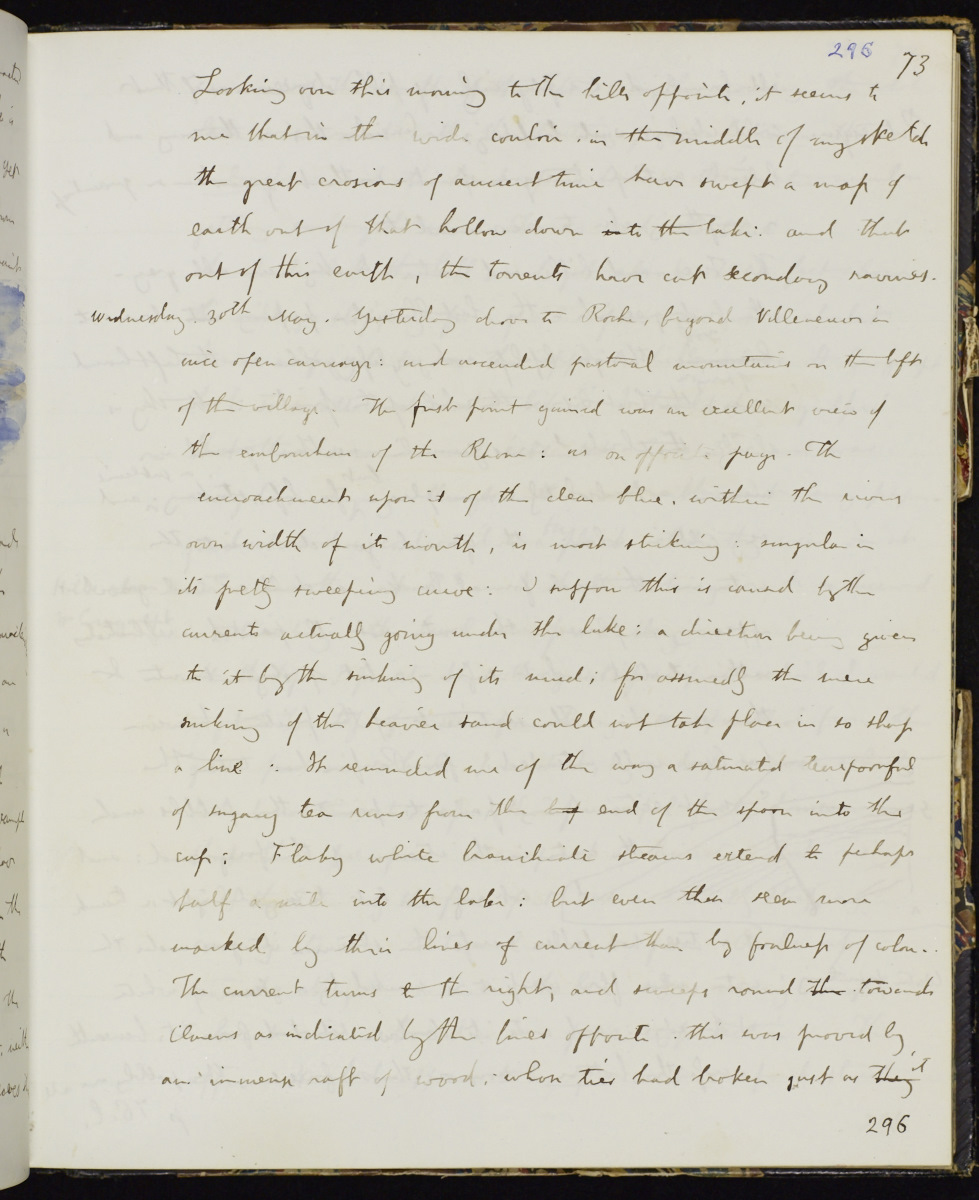 296 73
Looking over this morning to the hills opposite, it seems to
me that in the wide couloir in the middle of my sketch
the great erosions of ancient time have swept a mass of
earth out of that hollow down into the lake: and that
out of this earth, the torrents have cut secondary ravines.
Wednesday. 30th May. Yesterday drove to Roche, beyond Villeneuve in
nice open carriage: and ascended pastoral mountains on the left
of the village. The first point gained was an excellent view of
the embouchure of the Rhone: as on opposite page. The
encroachment upon it of the clear blue, within the rivers
own width of its mouth, is most striking: singular in
its pretty sweeping curve: I suppose this is caused by the
currents actually going under the lake: a direction being given
to it by the sinking of its mud; for assuredly the mere
sinking of the heavier sand could not take place in so sharp
a line: It reminded me of the way a saturated teaspoonful
of sugary tea runs from the end of the spoon into the
cup: Flaky white streams extend to perhaps
half a mile into the lake: but even these seem more
marked by their lines of current than by foulness of colour.
The current turns to the right, and sweeps round the towards
Clarens as indicated by the lines opposite. this was proved by
an immense raft of wood, whose ties had broken just as they it
296